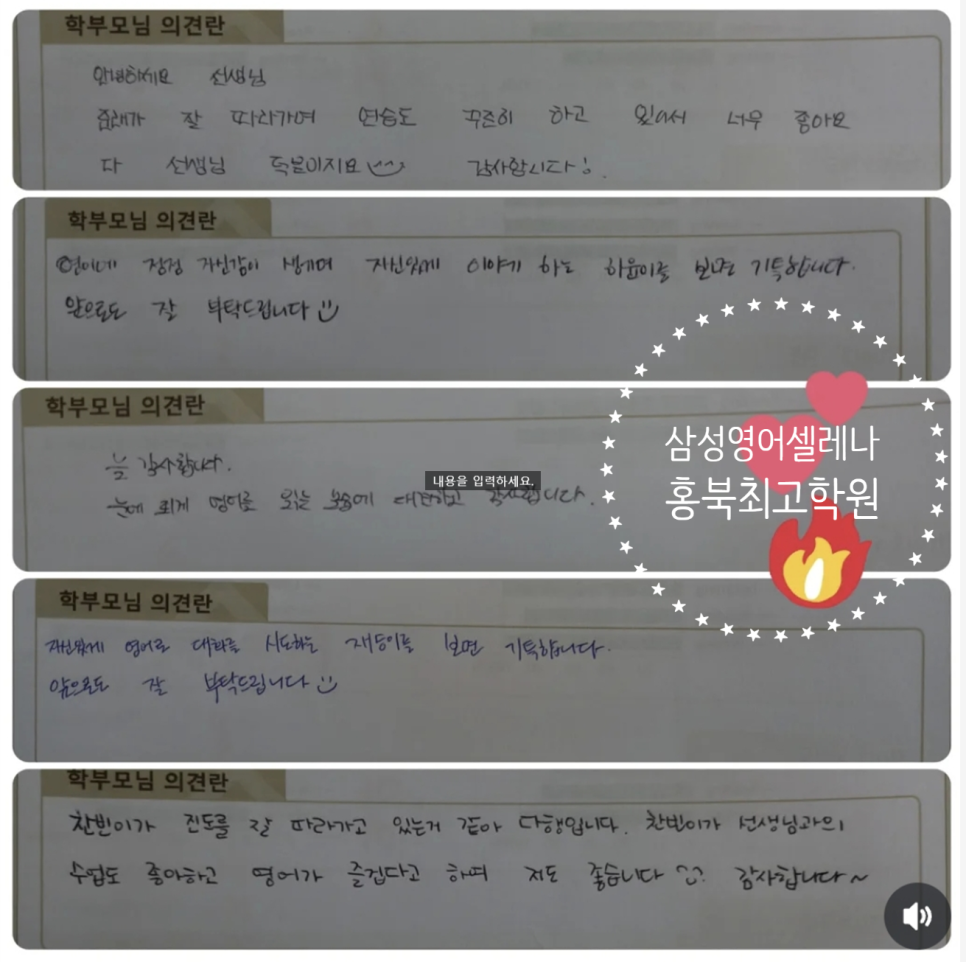 학부모님 의견란
안녕하세요 선생님
잘 따라가며 연습도 꾸준히 하고 있어서 너무 좋아요
다 선생님 덕분이지요 감사합니다!
학부모님 의견란
영어에 점점 자신감이 생기며 자신있게 이야기 하는 하윤이를 보면 기특합니다.
앞으로도 잘 부탁드립니다
학부모님 의견란
늘 감사합니다.
눈에 띄게 영어로 읽는 모습에 대견하고 감사합니다.
내용을 입력하세요.
삼성영어셀레나
홍북최고학원
학부모님 의견란
자신있게 영어로 대화를 시도하는 재등이를 보면 기특합니다.
앞으로도 잘 부탁드립니다
학부모님 의견란
찬빈이가 진도를 잘 따라가고 있는거 같아 다행입니다. 찬빈이가 선생님과의
수업도 좋아하고 영어가 즐겁다고 하며 저도 좋습니다 감사합니다~